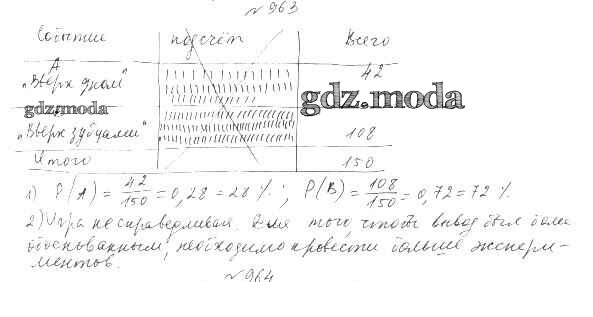 № 963
Событие подсчёт Всего
А
„Вверх дном" 42
gdz.moda gdz.moda
„Вверх зубцами" 108
Итого 150
1) P(A) = 42/150 = 0,28 = 28 %; P(B) = 108/150 = 0,72 = 72 %.
2) Игра несправедливая. Для того, чтобы вывод был более
обоснованным, необходимо провести больше экспери-
ментов.
№ 964